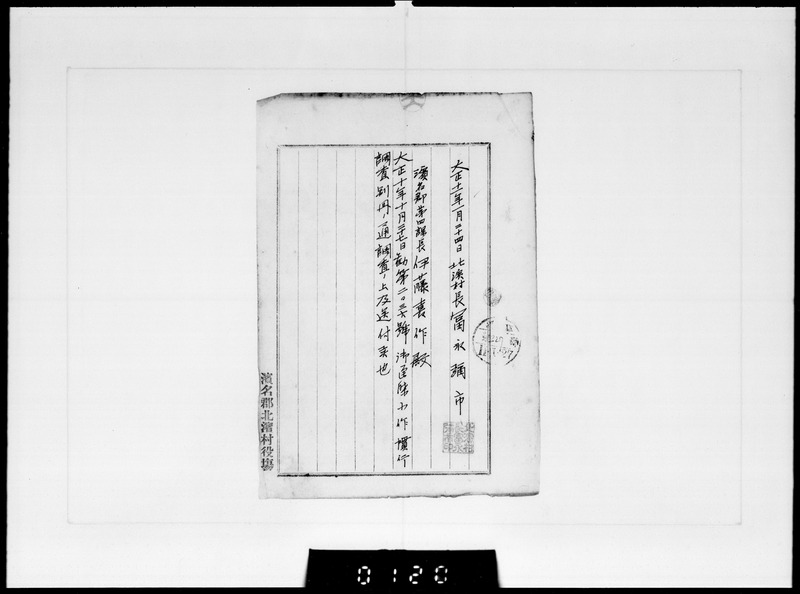 大正十一年一月二十四日 北濱村長 冨永彌市
濱名郡第四課長 伊藤喜作殿
大正十年十月二十七日勧第二〇三六號 御照會小作慣行
調査別冊ノ通調査ノ上及送付候也
濱名郡北濱村役場
0120